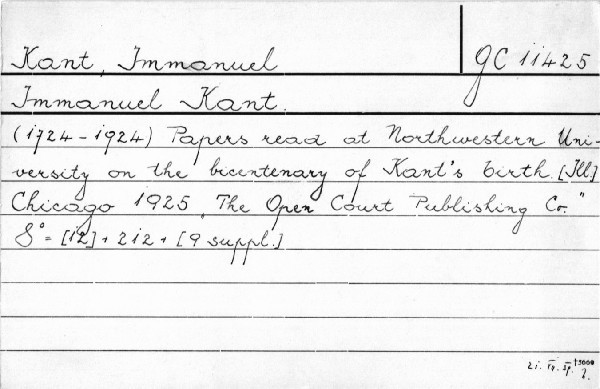 Kant, Immanuel
GC 11425
Immanuel Kant.
(1724-1924) Papers read at Northwestern Uni-
versity on the bicentenary of Kant's birth. [Ill.]
Chicago 1925 „The Open Court Publishing Co."
8° = [12] + 212 + [9 suppl.]